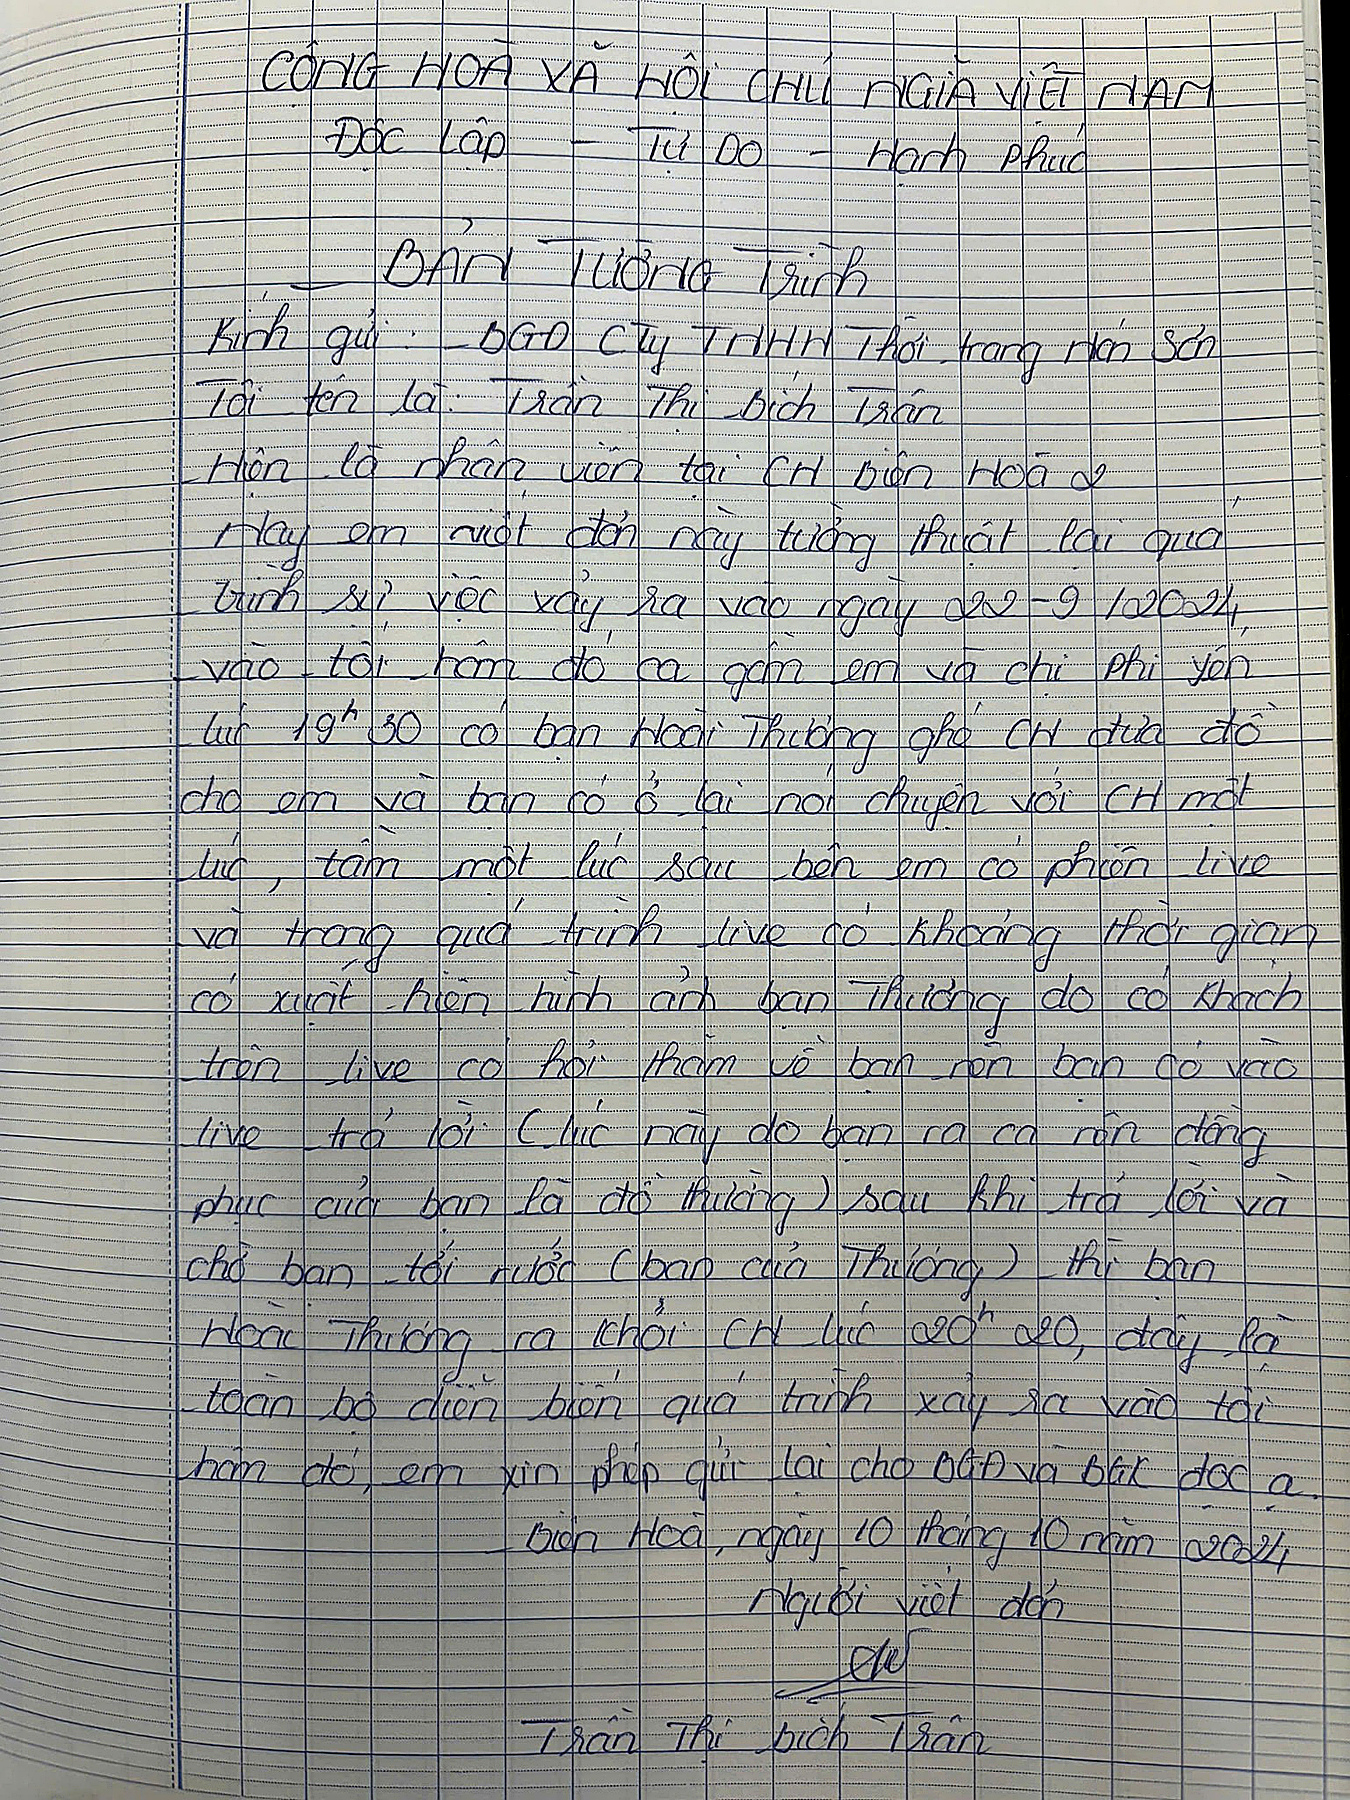 CỘNG HOÀ XÃ HỘI CHỦ NGIÃ VIỆT NAM
Độc Lập - Tự Do - Hạnh phúc
BẢN TƯỜNG Trình
Kính gửi: - BGĐ CTy TNHH Thời trang Hán Sơn
Tôi tên là: Trần Thị Bích Trân
Hiện là nhân viên tại CH Biên Hoà 2
Nay em viết đơn này tường thuật lại quá
trình sự việc xảy ra vào ngày 22-9/2024,
vào tối hôm đó ca gồm em và chị Phi Yến
lúc 19h30 có bạn Hoài Thương ghé CH đưa đồ
cho em và bạn có ở lại nói chuyện với CH một
lúc, tầm một lúc sau bên em có phiên live
và trong quá trình live có khoảng thời gian
có xuất hiện hình ảnh bạn Thương do có khách
trên live có hỏi thăm về bạn nên bạn có vào
live trả lời (lúc này do bạn ra ca nên đồng
phục của bạn là đồ thường) sau khi trả lời và
chờ bạn tới rước (bạn của Thương) thì bạn
Hoài Thương ra khỏi CH lúc 20h20, đây là
toàn bộ diễn biến quá trình xảy ra vào tối
hôm đó, em xin phép gửi lại cho BGĐ và BGK đọc ạ.
Biên Hoà, ngày 10 tháng 10 năm 2024
Người viết đơn
Trần Thị Bích Trân